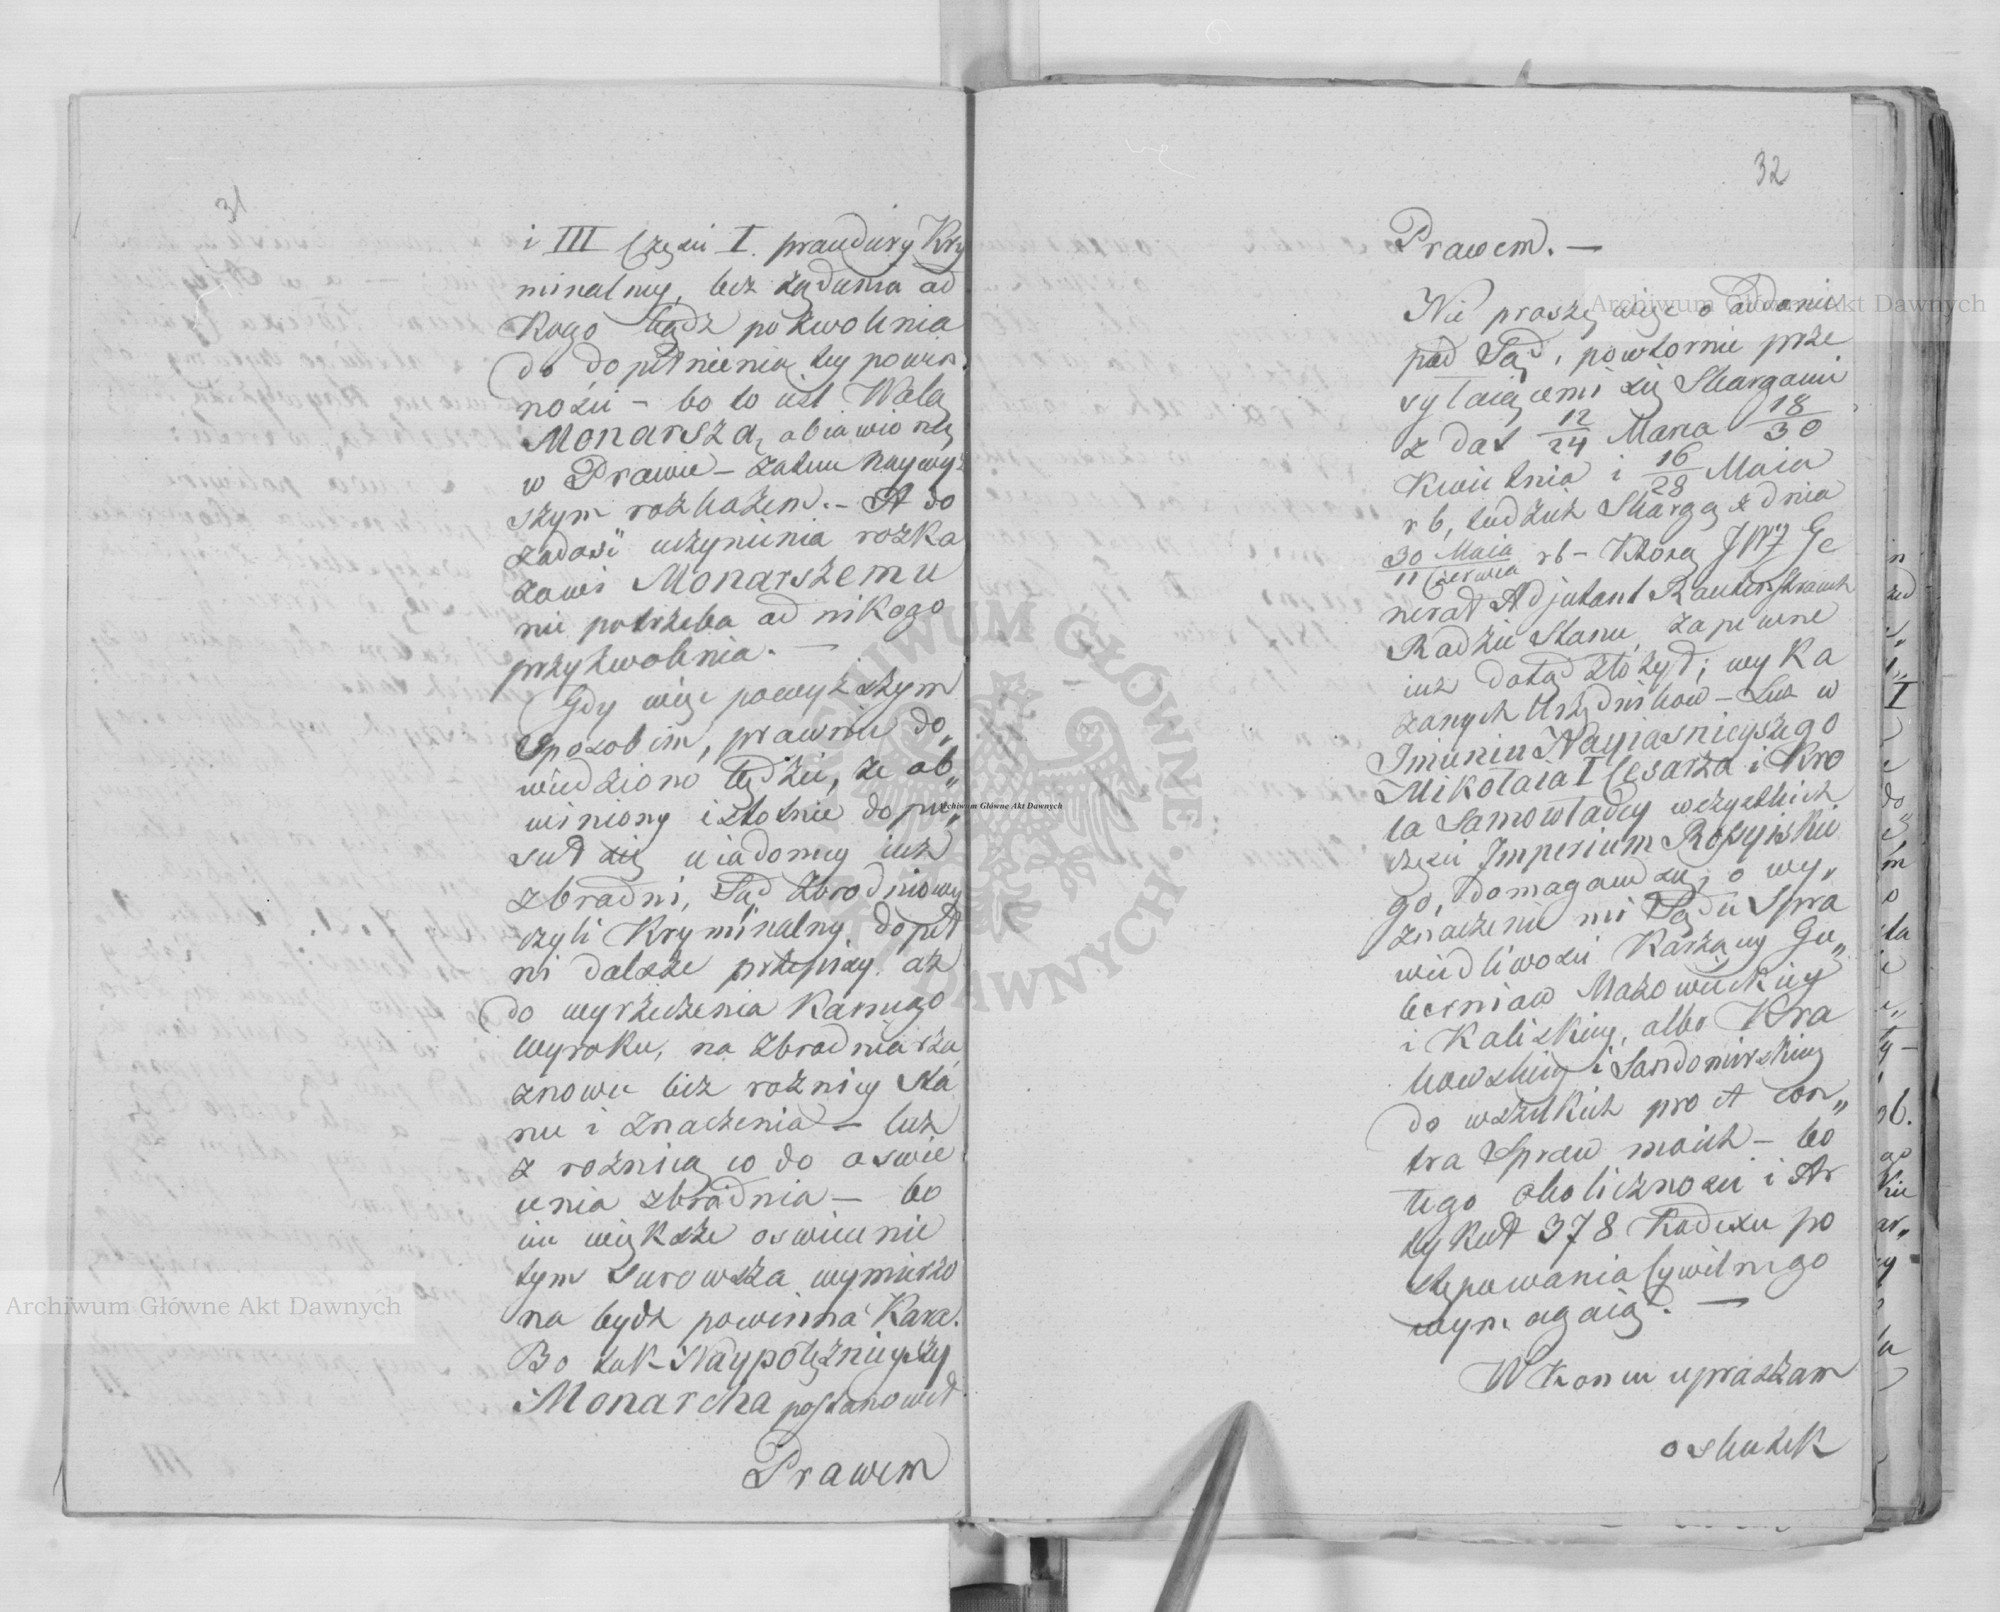 31
i III Części I. procedury Kry
minalney, bez żądania od
Kogo bądź pozwolenia
do dopełnienia tey powin.
ności – bo to iest Wolą
Monarszą obiawioną
w Prawie – zatem naywyż
szym rozkazem. – A do
zadość uczynienia rozka
zowi Monarszemu
nie potrzeba od nikogo
przyzwolenia. –
Gdy więc powyższym
Sposobem, prawnie do„
wiedziono będzie, że ob„
winiony istotnie dopu„
scił się wiadomey iuż
zbrodni, Sąd Zbrodniowy
czyli Kryminalny dopeł
ni dalsze przepisy aż
do wyrzeczenia Karnego
Wyroku, na zbrodniarza
znowu bez rożnicy Sta
nu i znaczenia – lecz
z rożnicą co do oswie
cenia zbrodnia – bo
im większe oswiecenie
tym surowsza wymierzo
na bydź powinna Kara.
Bo tak Naypotężnieyszy
Monarcha postanowił
Prawem
32
Prawem. –
Nie proszę więc o oddanie
pod Sąd, powtornie prze
syłaiącemi się Skargami
z dat 12/24 Marca 18/30
Kwietnia i 16/28 Maia
rb, tudzież Skargą z dnia
30 Maia/11 Czerwca rb – Ktorą JW Ge
nerał Adjutant Rautenstrauch
Radzie Stanu, zapewne
iuż dotąd złożył; wyka
zanych Urzędnikow – Lecz w
Imieniu Nayiasnieyszego
Mikołaia I Cesarza i Kro
la Samowładcy wszystkich
części Imperium Rossyiskie
go, domagam się, o wy„
znaczenie mi Sądu Spra
wiedliwości Karzącey Gu„
berniow Mazowieckiey
i Kaliskiey, albo Kra
kowskiey i Sandomirskiey
do wszelkich pro et con„
tra Spraw moich – bo
tego okoliczności i Ar
tykuł 378 Kodexu po
stępowania Cywilnego
wymagaią. –
W Koncu upraszam
o skutek